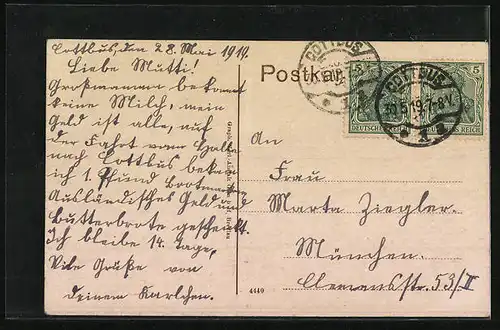 Cottbus, den 28. Mai 1919.
Liebe Mutti!
Großmamman bekommt
keine Milch, mein
Geld ist alle, auf
der Fahrt vom Halle
nach Cottbus bekam
ich 1 Pfund
Ausländisches Geld und
Butterbrote geschenkt.
Ich bleibe 14. Tage,
Viele Grüße von
deinem Karlchen.
Postkarte
COTTBUS
COTTBUS
30.5.19.7-8V.
1
5
5
DEUTSCHES REICH
An
Frau
Marta Ziegler.
München.
53/II
4449